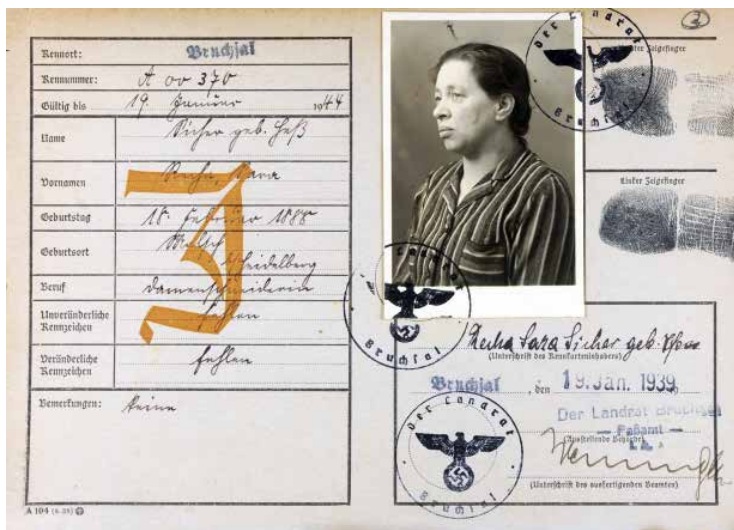 ②
Kennort: Bruchsal
Kennnummer: A 00 370
Gültig bis 19. Januar 1944
Name Sicher geb. Heß
Vornamen Recha, Sara
Geburtstag 18. Februar 1888
Geburtsort Malsch
Heidelberg
Beruf Damenschneiderin
Unveränderliche Kennzeichen fehlen
Veränderliche Kennzeichen fehlen
Bemerkungen: Keine
J
A 104 (6.38)
Der Landrat
Bruchsal
Rechter Zeigefinger
Linker Zeigefinger
Bruchsal
Recha Sara Sicher geb.
(Unterschrift des Kennkarteninhabers)
Bruchsal, den 19. Jan. 1939
Der Landrat Bruchsal
— Paßamt —
(Ausstellende Behörde)
I.A.
Der Landrat
Bruchsal
(Unterschrift des ausfertigenden Beamten)